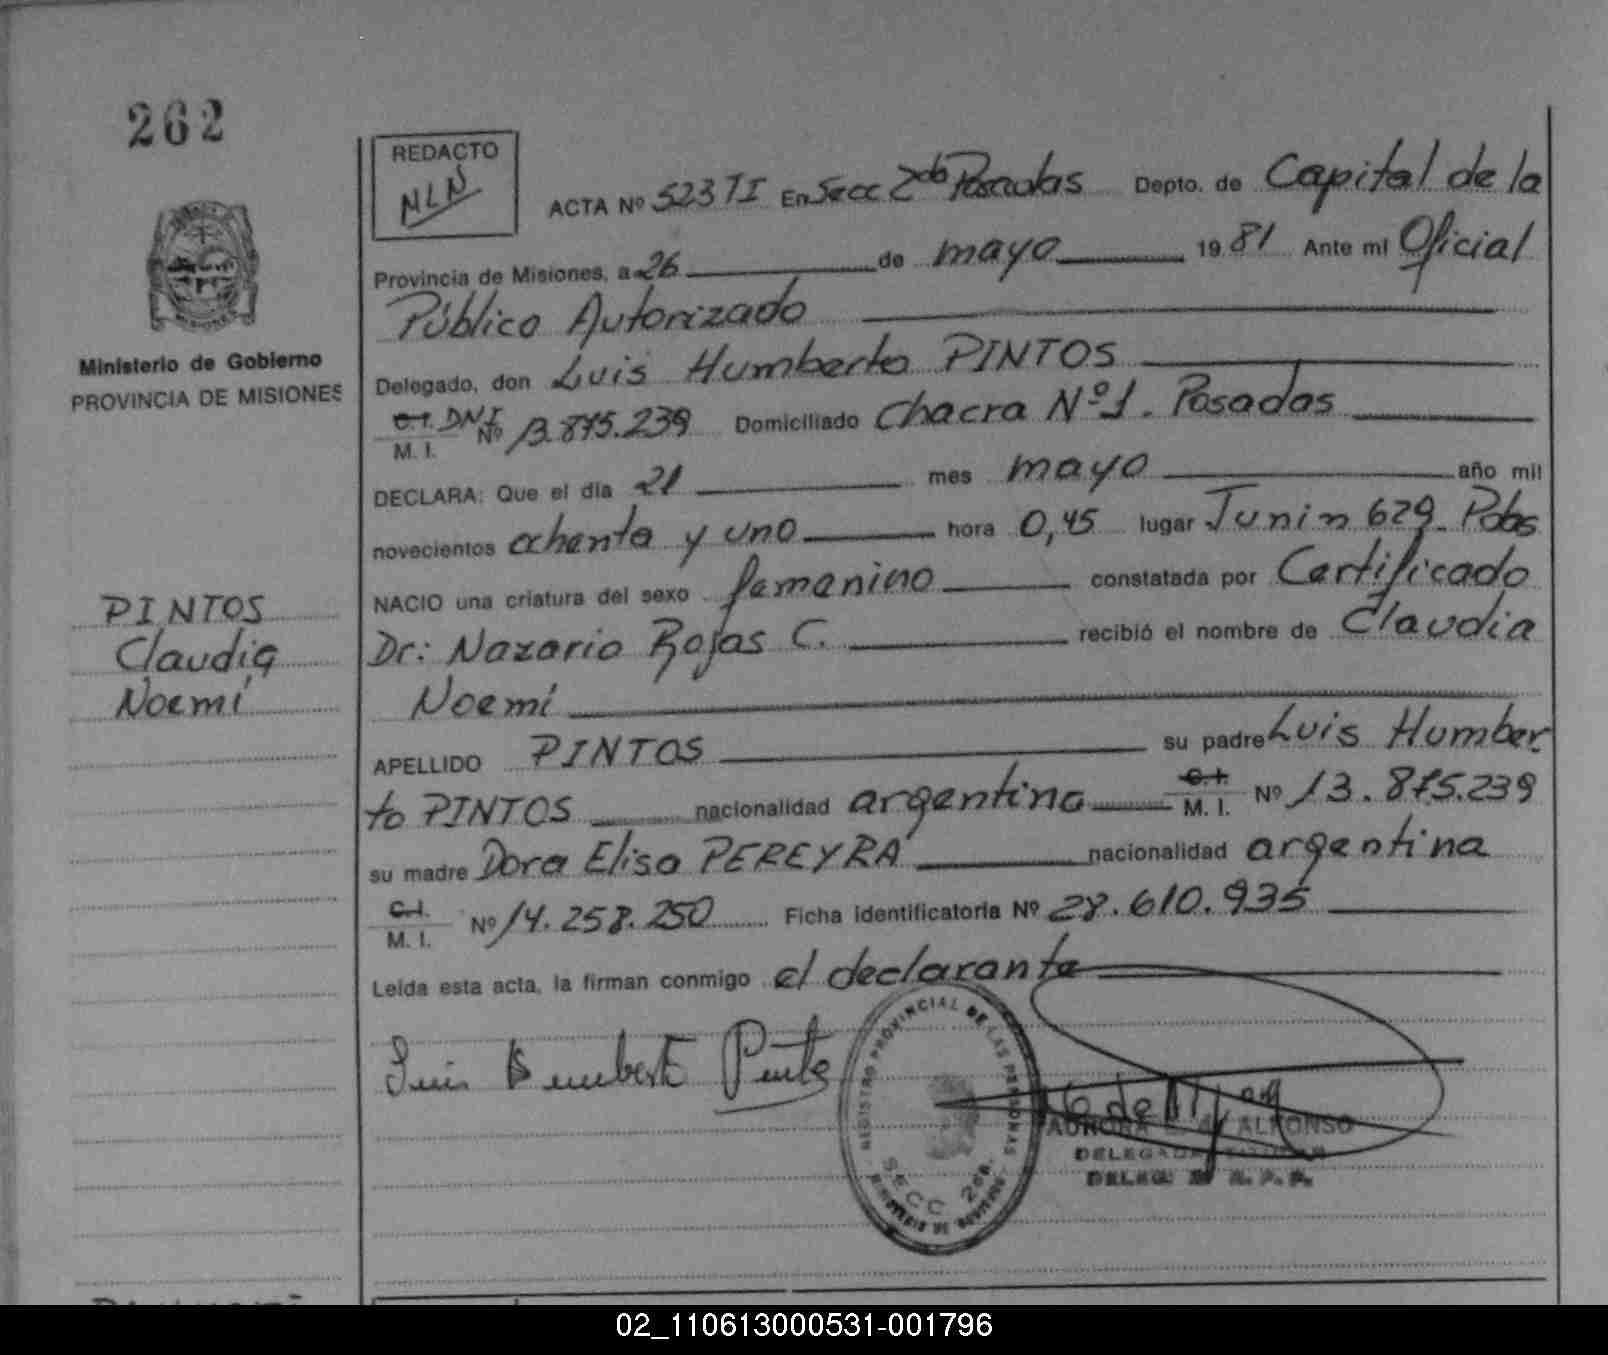 262
REDACTO
NLN
ACTA Nº 523 TI En Secc 2da Posadas Depto. de Capital de la
Provincia de Misiones, a 26 de mayo 19 81 Ante mi Oficial
Público Autorizado
Delegado, don Luis Humberto PINTOS
C.I. DNI
M. I. Nº 13.875.239 Domiciliado Chacra Nº 1. Posadas
DECLARA: Que el día 21 mes mayo año mil
novecientos ochenta y uno hora 0,45 lugar Junin 629. Pdas
NACIO una criatura del sexo femenino constatada por Certificado
Dr: Nazario Rojas C. recibió el nombre de Claudia
Noemí
APELLIDO PINTOS su padre Luis Humber
to PINTOS nacionalidad argentina C.I. M. I. Nº 13.875.239
su madre Dora Elisa PEREYRA nacionalidad argentina
C.I.
M. I. Nº 14.258.250 Ficha identificatoria Nº 28.610.935
Leída esta acta, la firman conmigo el declarante
Luis Humberto Pintos
REGISTRO PROVINCIAL DE LAS PERSONAS
SECC 2da.
MINISTERIO DE GOBIERNO
AURORA ALFONSO
DELEGADA TITULAR
Ministerio de Gobierno
PROVINCIA DE MISIONES
PINTOS
Claudia
Noemí
02_110613000531-001796